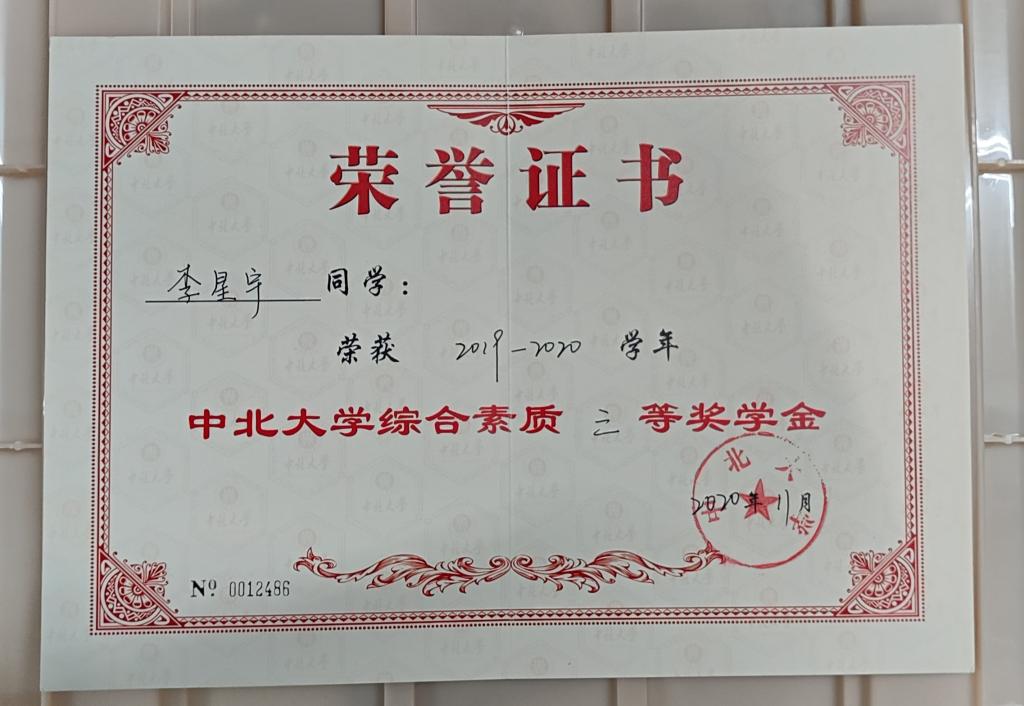 荣誉证书
李星宇 同学：
荣获 2019-2020 学年
中北大学综合素质 三 等奖学金
中北大学
2020年11月
Nº 0012486